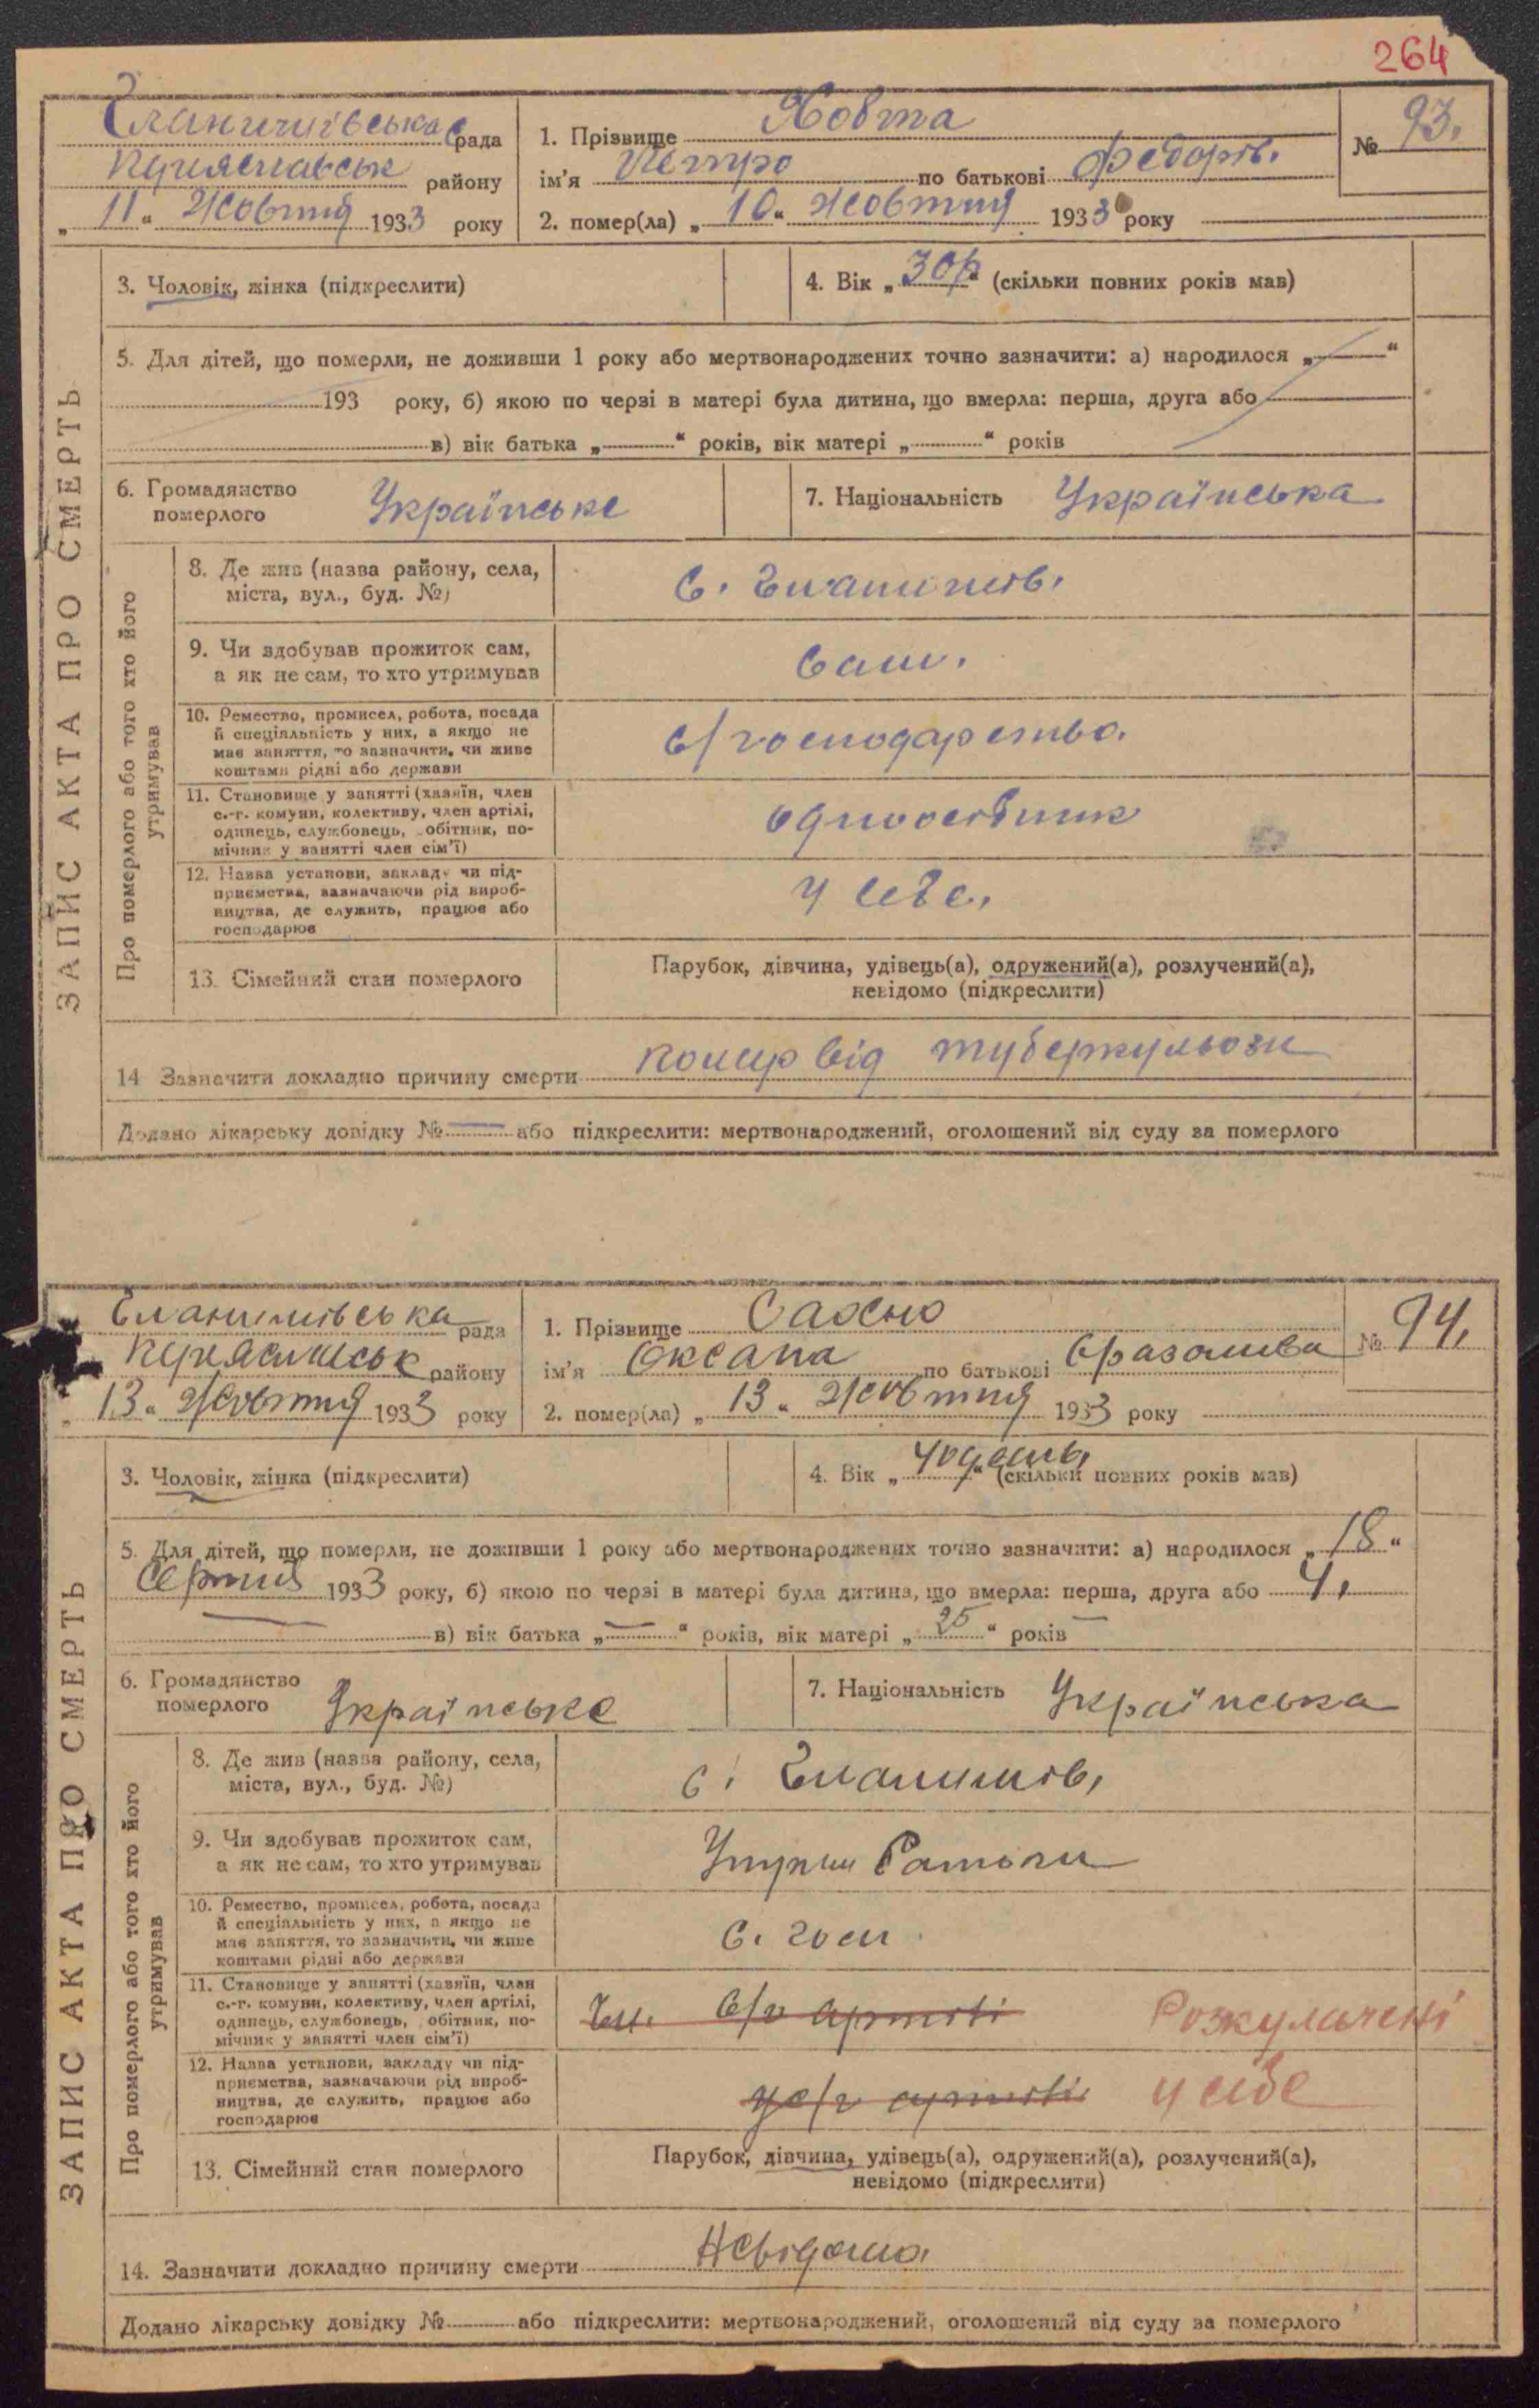 264
рада
району
„ 11 “ Жовтня 1933 року
1. Прізвище Жовта
ім'я Петро по батькові Федорів.
2. помер(ла) „ 10 “ Жовтня 1933 року
№ 93.
ЗАПИС АКТА ПРО СМЕРТЬ
3. Чоловік, жінка (підкреслити)
4. Вік „ 30р “ (скільки повних років мав)
5. Для дітей, що померли, не доживши 1 року або мертвонароджених точно зазначити: а) народилося „ “
193 року, б) якою по черзі в матері була дитина, що вмерла: перша, друга або
в) вік батька „ “ років, вік матері „ “ років
6. Громадянство
померлого
Українське
7. Національність Українська
Про померлого або того хто його
утримував
8. Де жив (назва району, села,
міста, вул., буд. №)
9. Чи здобував прожиток сам,
а як не сам, то хто утримував
Сам.
10. Ремество, промисел, робота, посада
й спеціальність у них, а якщо не
має заняття, то зазначити, чи живе
коштами рідні або держави
С/господарство.
11. Становище у занятті (хазяїн, член
с.-г. комуни, колективу, член артілі,
одинець, службовець, обітник, по-
мічник у занятті член сім'ї)
одноосібник
12. Назва установи, закладу чи під-
приємства, зазначаючи рід вироб-
ництва, де служить, працює або
господарює
у себе.
13. Сімейний стан померлого
Парубок, дівчина, удівець(а), одружений(а), розлучений(а),
невідомо (підкреслити)
14 Зазначити докладно причину смерти помер від туберкульози
Додано лікарську довідку № або підкреслити: мертвонароджений, оголошений від суду за померлого
рада
району
„ 13 “ Жовтня 1933 року
1. Прізвище Сахно
ім'я Оксана по батькові
2. помер(ла) „ 13 “ Жовтня 1933 року
№ 94.
ЗАПИС АКТА ПРО СМЕРТЬ
3. Чоловік, жінка (підкреслити)
4. Вік „ “ (скільки повних років мав)
5. Для дітей, що померли, не доживши 1 року або мертвонароджених точно зазначити: а) народилося „ 18 “
Серпня 1933 року, б) якою по черзі в матері була дитина, що вмерла: перша, друга або 4.
в) вік батька „ — “ років, вік матері „ 25 “ років
6. Громадянство
померлого
Українське
7. Національність Українська
Про померлого або того хто його
утримував
8. Де жив (назва району, села,
міста, вул., буд. №)
9. Чи здобував прожиток сам,
а як не сам, то хто утримував
10. Ремество, промисел, робота, посада
й спеціальність у них, а якщо не
має заняття, то зазначити, чи живе
коштами рідні або держави
с. госп
11. Становище у занятті (хазяїн, член
с.-г. комуни, колективу, член артілі,
одинець, службовець, обітник, по-
мічник у занятті член сім'ї)
Чл. С/г артілі Розкулачені
12. Назва установи, закладу чи під-
приємства, зазначаючи рід вироб-
ництва, де служить, працює або
господарює
у с/г артілі у себе
13. Сімейний стан померлого
Парубок, дівчина, удівець(а), одружений(а), розлучений(а),
невідомо (підкреслити)
14. Зазначити докладно причину смерти Невідома
Додано лікарську довідку № або підкреслити: мертвонароджений, оголошений від суду за померлого